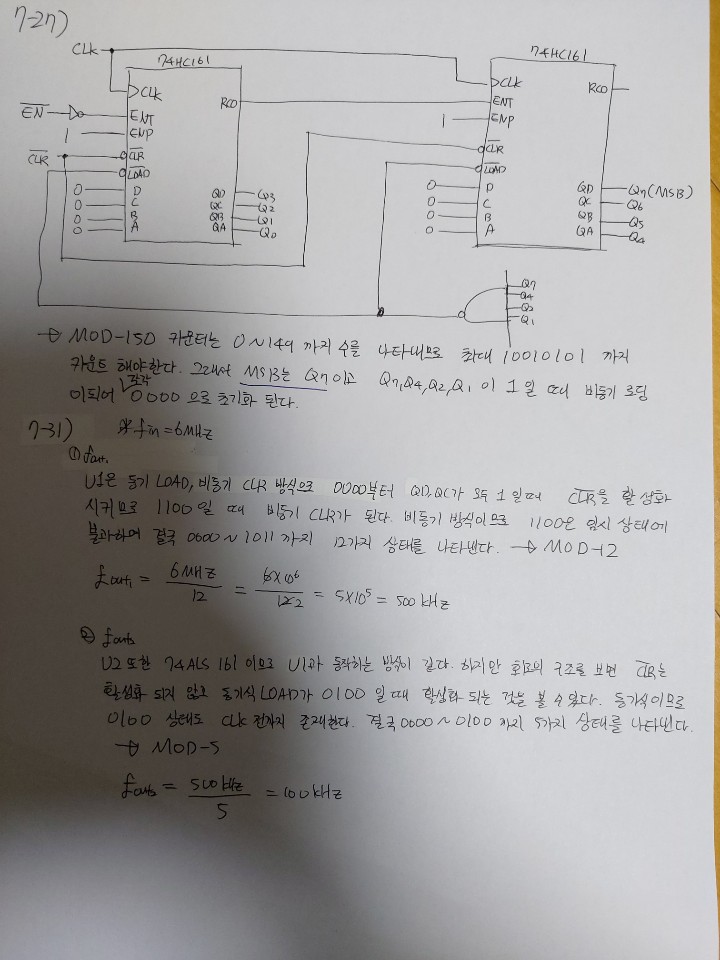 7-27)
CLK
74HC161
74HC161
CLK
RCO
EN
ENT
1
ENP
CLR
CLR
LOAD
0 D QD Q3
0 C QC Q2
0 B QB Q1
0 A QA Q0
CLK
RCO
ENT
1
ENP
CLR
LOAD
0 D QD Q7(MSB)
0 C QC Q6
0 B QB Q5
0 A QA Q4
Q7
Q4
Q2
Q1
→ MOD-150 카운터는 0~149 까지 수를 나타내므로 최대 10010101 까지
카운트 해야한다. 그래서 MSB는 Q7이고 Q7,Q4,Q2,Q1 이 1 일 때 비동기 로딩
이되어 각각 0000 으로 초기화 된다.
7-31) * fin = 6MHz
① fout1
U1은 동기 LOAD, 비동기 CLR 방식으로 0000부터 QD,QC가 모두 1 일때 CLR을 활성화
시키므로 1100 일 때 비동기 CLR가 된다. 비동기 방식이므로 1100은 임시 상태에
불과하며 결국 0000 ~ 1011 까지 12가지 상태를 나타낸다. → MOD-12
fout1 = 6MHz / 12 = 6×10⁶ / 12 = 5×10⁵ = 500 kHz
② fout2
U2 또한 74ALS 161 이므로 U1과 동작하는 방식이 같다. 하지만 회로의 구조를 보면 CLR는
활성화 되지 않고 동기식 LOAD가 0100 일 때 활성화 되는 것을 볼 수 있다. 동기식이므로
0100 상태도 CLK 전까지 존재한다. 결국 0000 ~ 0100 까지 5가지 상태를 나타낸다.
→ MOD-5
fout2 = 500kHz / 5 = 100kHz